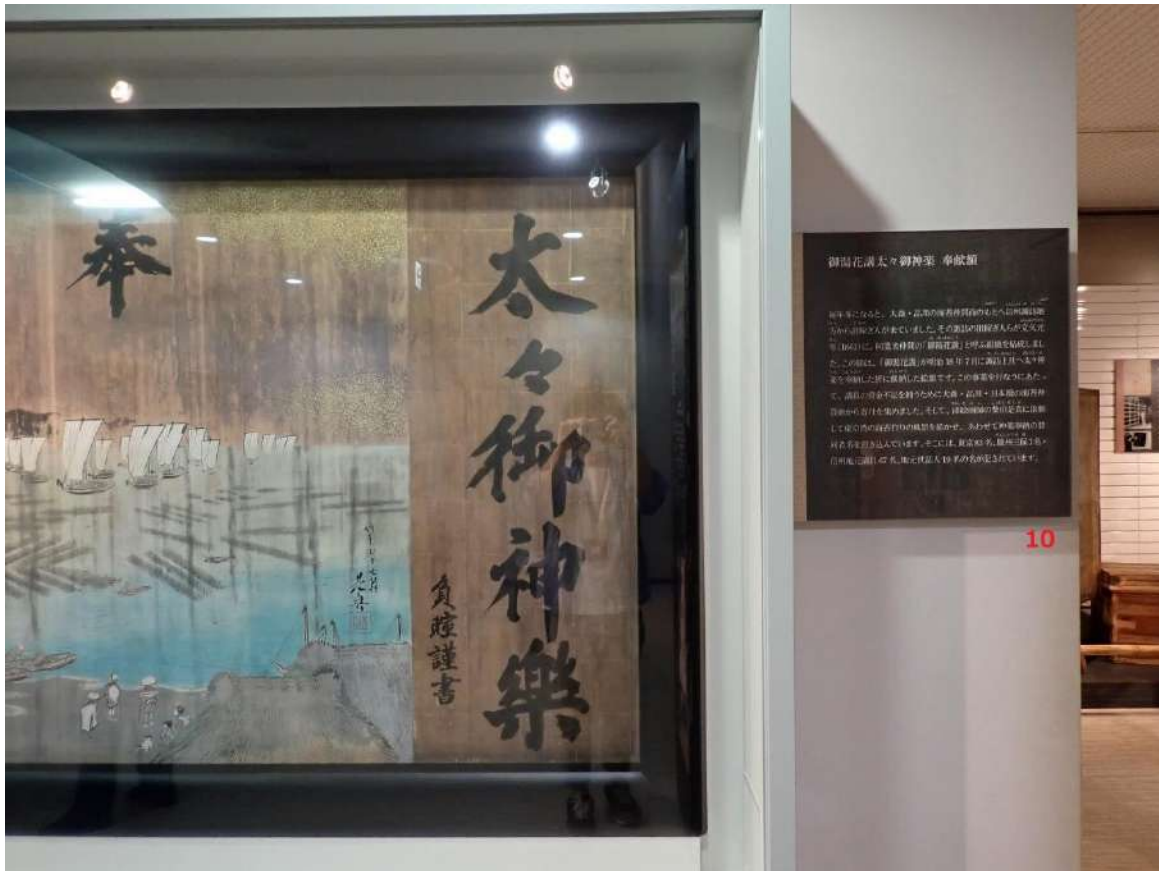 奉
太々御神樂
負暄謹書
御湯花講太々御神楽 奉献額
毎年冬になると、大森・品川の海苔仲買商のもとへ信州諏訪地
方から出稼ぎ人が来ていました。その諏訪の出稼ぎ人らが文久元
年(1861)に、同業者仲間の「御湯花講」と呼ぶ組織を結成しまし
た。この額は、「御湯花講」が明治18年7月に諏訪上社へ太々神
楽を奉納した折に献納した絵額です。この事業を行なうにあたっ
て、講員の資金不足を補うために大森・品川・日本橋の海苔仲
買商から寄付を集めました。そして、
して東京湾の海苔採りの風景を描かせ、あわせて神楽奉納の賛
同者名を書き込んでいます。そこには、東京83名、駿州三保3名・
信州地元講員67名、地元世話人19名の名が記されています。
10